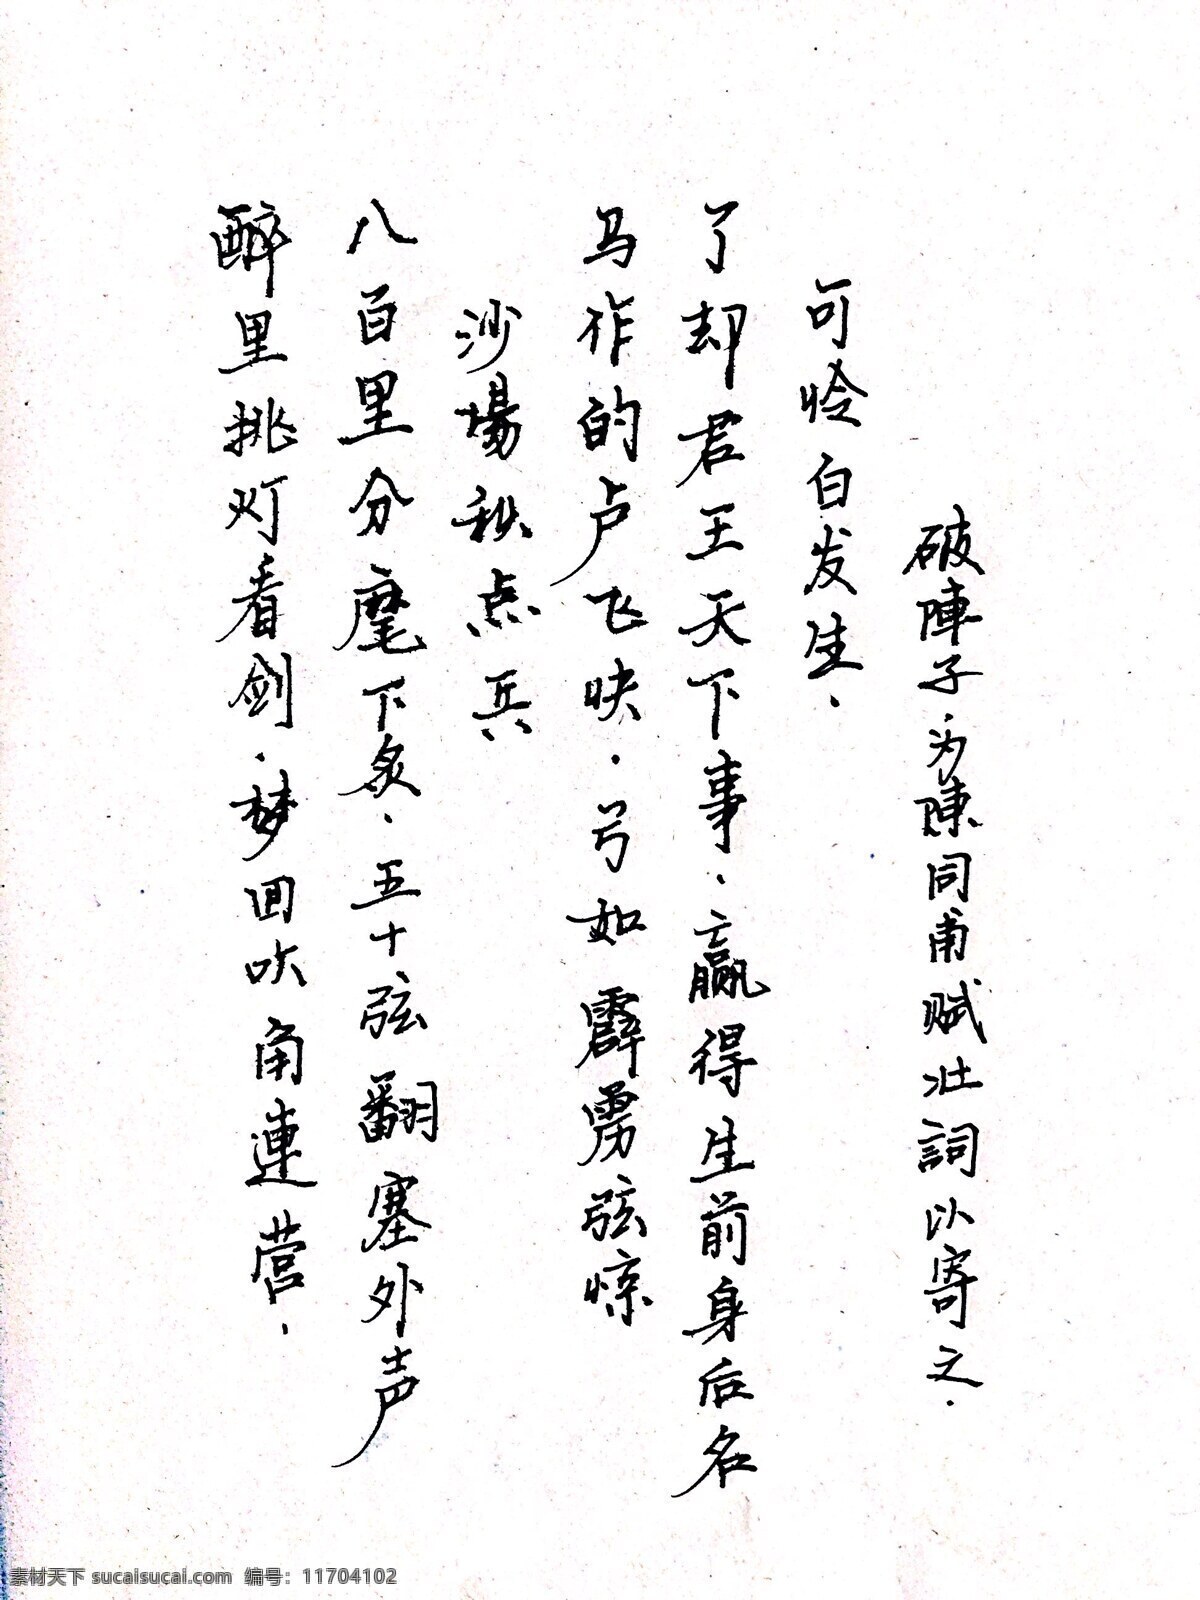 醉里挑灯看剑.梦回吹角連营.
八百里分麾下炙.五十弦翻塞外声
沙場秋点兵
马作的卢飞快.弓如霹雳弦惊
了却君王天下事.赢得生前身后名
可怜白发生.
破陣子.为陳同甫赋壮詞以寄之.
素材天下 sucaisucai.com 编号：11704102